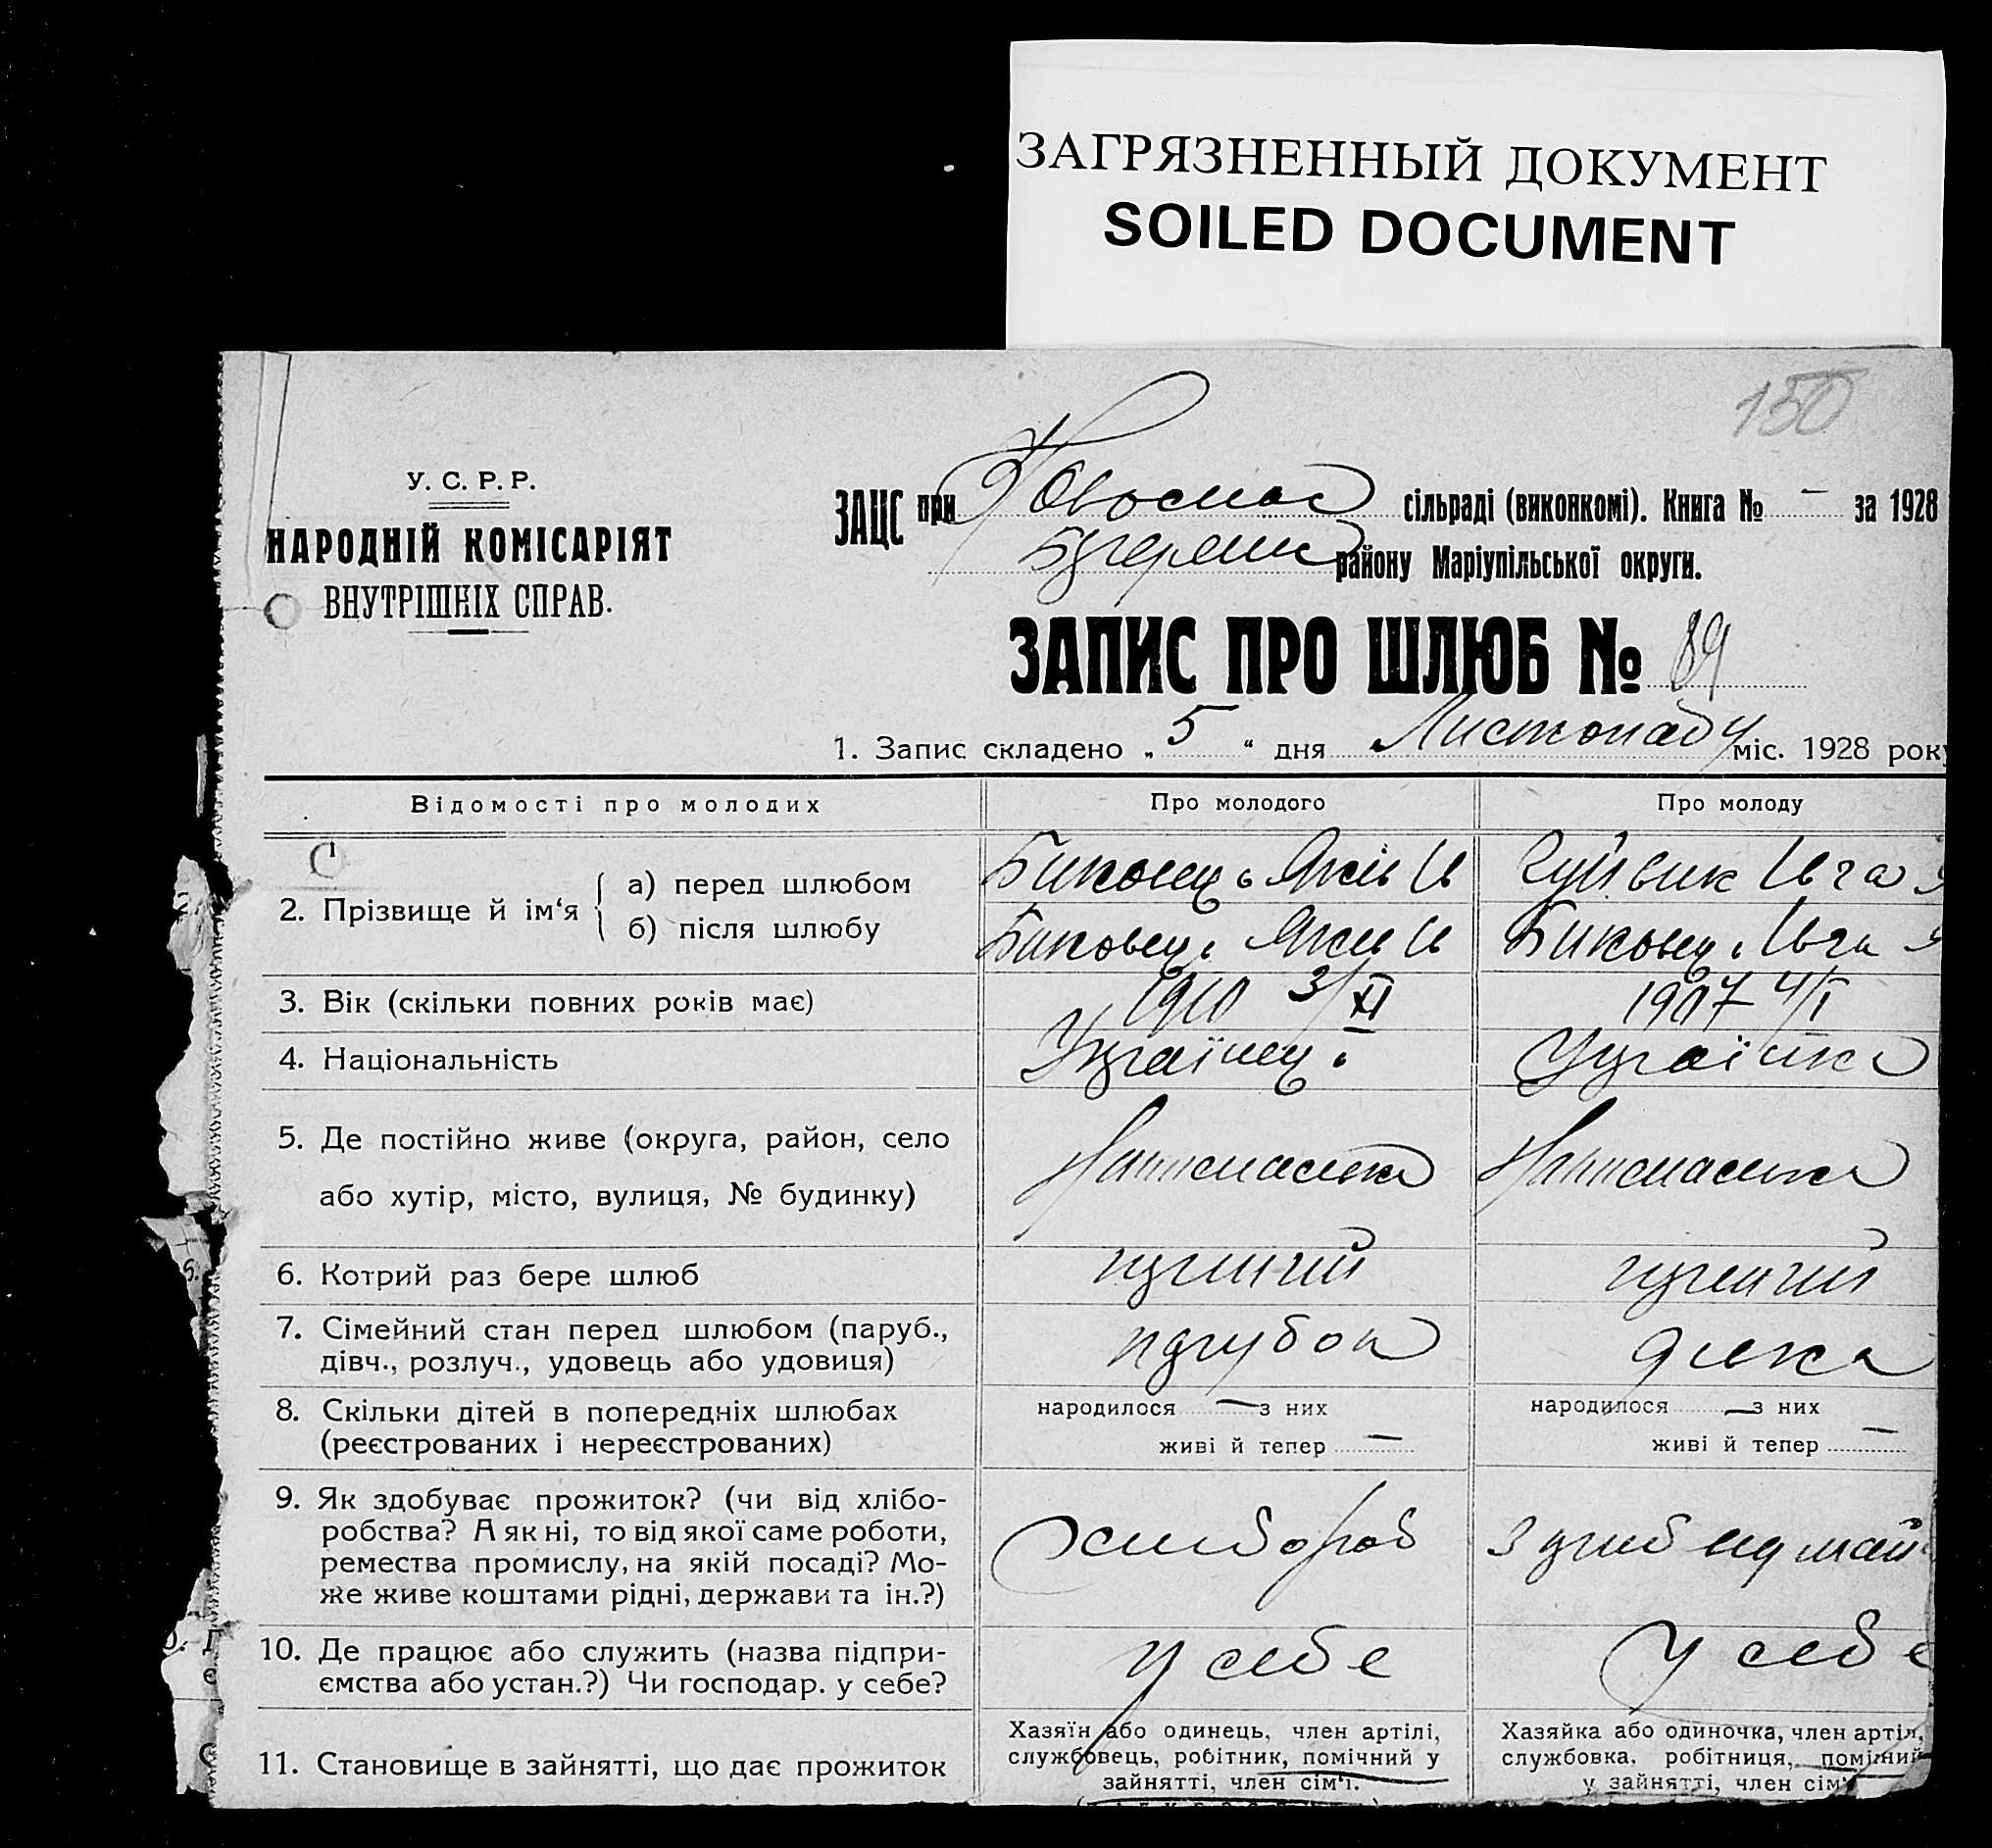 ЗАГРЯЗНЕННЫЙ ДОКУМЕНТ
SOILED DOCUMENT
150
У. С. Р. Р.
НАРОДНІЙ КОМІСАРІЯТ
ВНУТРІШНІХ СПРАВ.
ЗАЦС при Новоспас сільраді (виконкомі). Книга № - за 1928
району Маріупільської округи.
ЗАПИС ПРО ШЛЮБ № 89
1. Запис складено „ 5 “ дня Листопаду міс. 1928 року
Відомості про молодих Про молодого Про молоду
2. Прізвище й ім‘я
а) перед шлюбом Биковець Яким И
б) після шлюбу Биковець Яким И Биковец
3. Вік (скільки повних років має) 1910 3/XI 1907 4/I
4. Національність Українець Українка
5. Де постійно живе (округа, район, село
або хутір, місто, вулиця, № будинку)
6. Котрий раз бере шлюб перший перший
7. Сімейний стан перед шлюбом (паруб.,
дівч., розлуч., удовець або удовиця) парубок
8. Скільки дітей в попередніх шлюбах народилося — з них народилося — з них
(реєстрованих і нереєстрованих) живі й тепер — живі й тепер —
9. Як здобуває прожиток? (чи від хлібо-
робства? А як ні, то від якої саме роботи,
ремества промислу, на якій посаді? Мо-
же живе коштами рідні, держави та ін.?)
хлібороб
10. Де працює або служить (назва підпри-
ємства або устан.?) Чи господар. у себе?
у себе у себе
11. Становище в зайнятті, що дає прожиток
Хазяїн або одинець, член артілі,
службовець, робітник, помічний у
зайнятті, член сім‘ї.
Хазяйка або одиночка, член артіл,
службовка, робітниця, помічний
у зайнятті, член сім‘